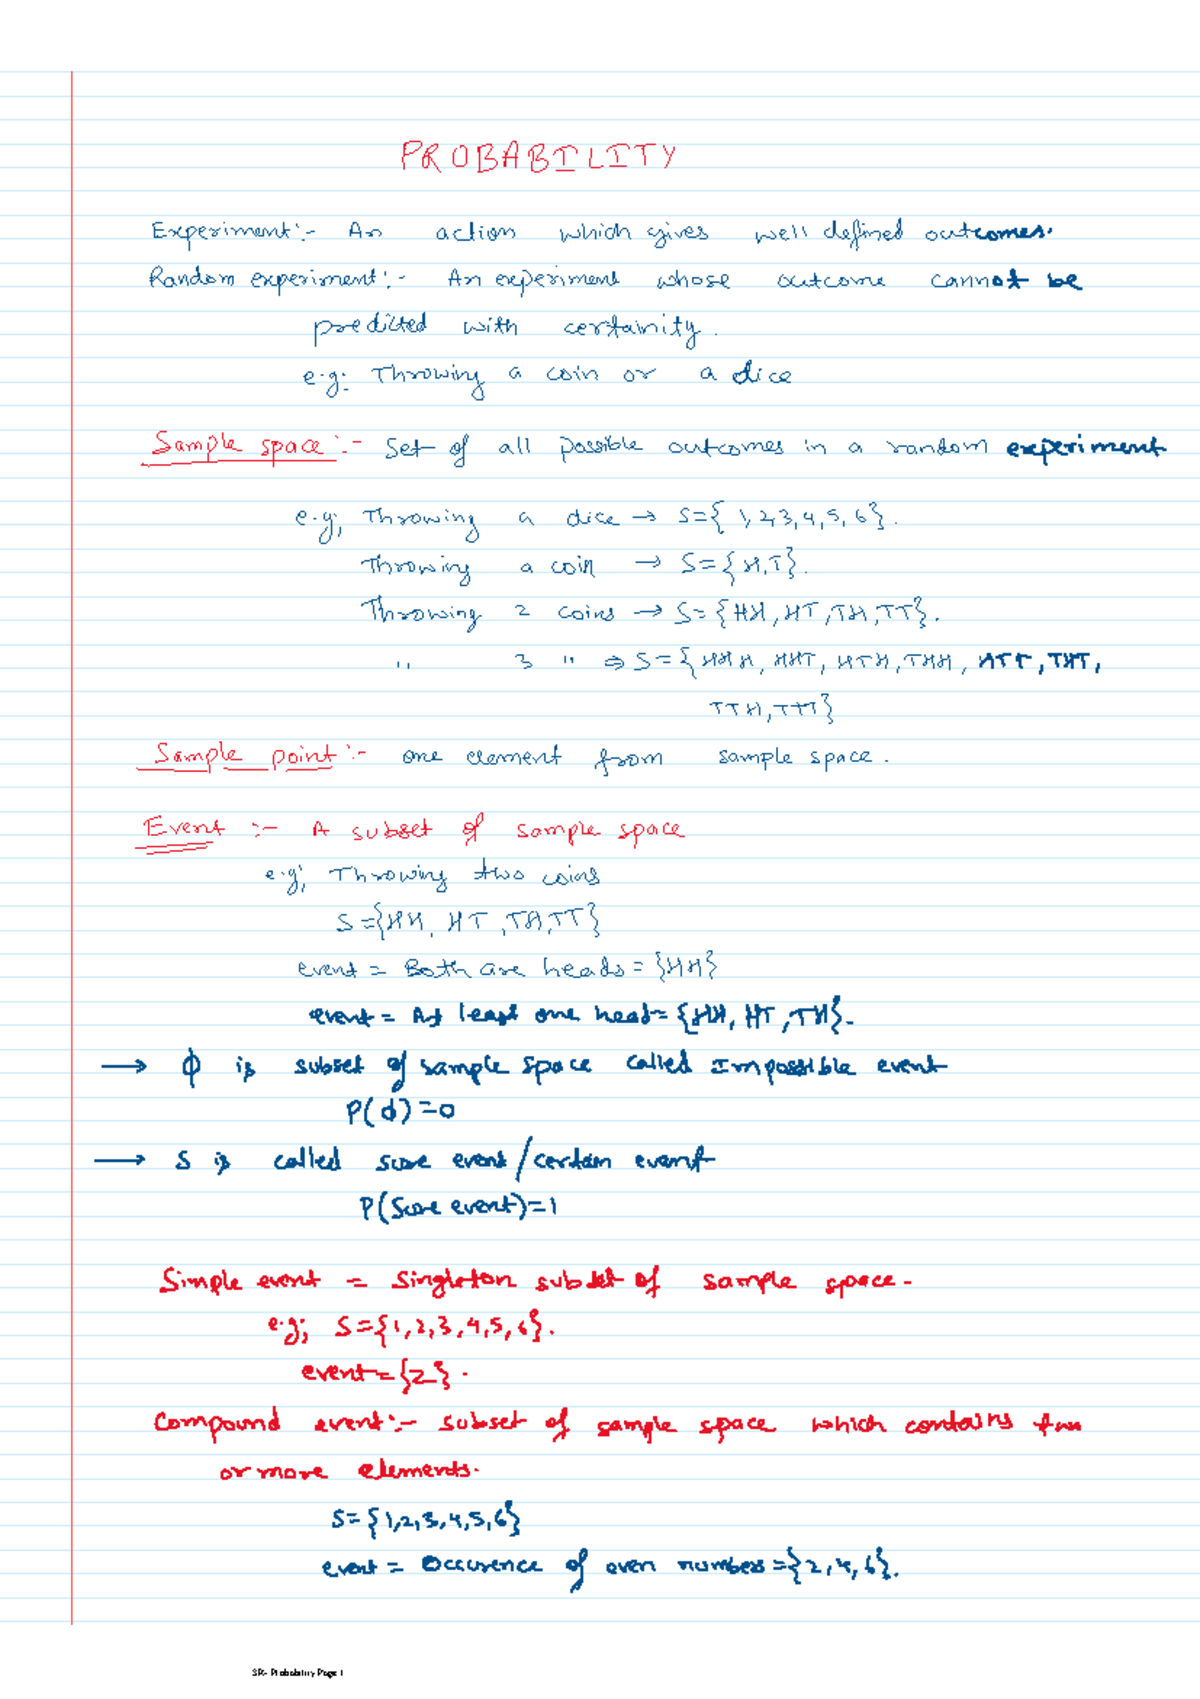 PROBABILITY
Experiment:- An action which gives well defined outcomes.
Random experiment:- An experiment whose outcome cannot be
predicted with certainity.
e.g: Throwing a coin or a dice
Sample space:- Set of all possible outcomes in a random experiment
e.g; Throwing a dice → S={ 1,2,3,4,5,6}.
Throwing a coin → S={H,T}.
Throwing 2 coins → S={HH,HT,TH,TT}.
" 3 " ⇒ S={HHH, HHT, HTH,THH, HTT,THT,
TTH,TTT}
Sample point:- one element from sample space.
Event :- A subset of sample space
e.g; Throwing two coins
S={HH, HT,TH,TT}
event = Both are heads={HH}
event = At least one head={HH, HT,TH}.
→ ϕ is subset of sample space called Impossible event
P(ϕ)=0
→ S is called sure event/certain event
P(Sure event)=1
Simple event = Singleton subset of sample space.
e.g; S={1,2,3,4,5,6}.
event={2}.
Compound event:- subset of sample space which contains two
or more elements.
S={1,2,3,4,5,6}
event = Occurence of even numbers={2,4,6}.
SR- Probability Page 1